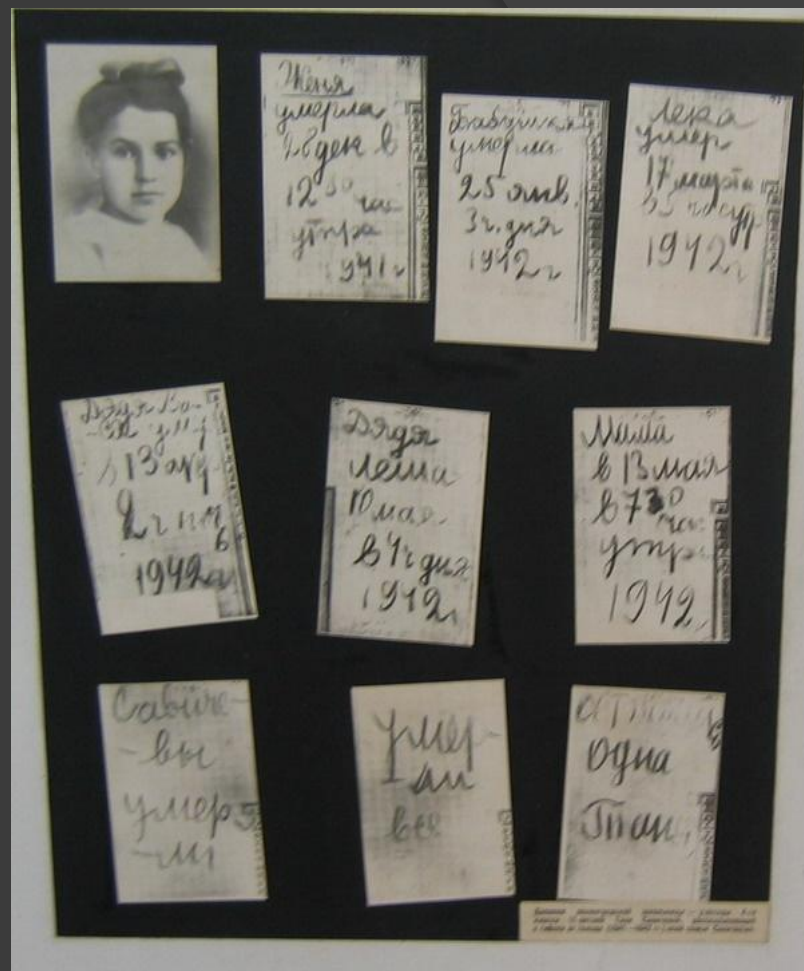 Женя
умерла
28 дек в
12 30 час
утра
1941 г
Бабушка
умерла
25 янв.
3 ч. дня
1942 г
Лека
умер
17 марта
в 5 час ут
1942 г
Дядя Ва-
-ся ум
в 13 апр
2 ч ноч
1942 г
Дядя
Леша
10 мая
в 4 ч дня
1942 г
Мама
в 13 мая
в 7 30 час
утра
1942
Савиче-
-вы
умер
-ли
умер-
-ли
все
одна
Таня